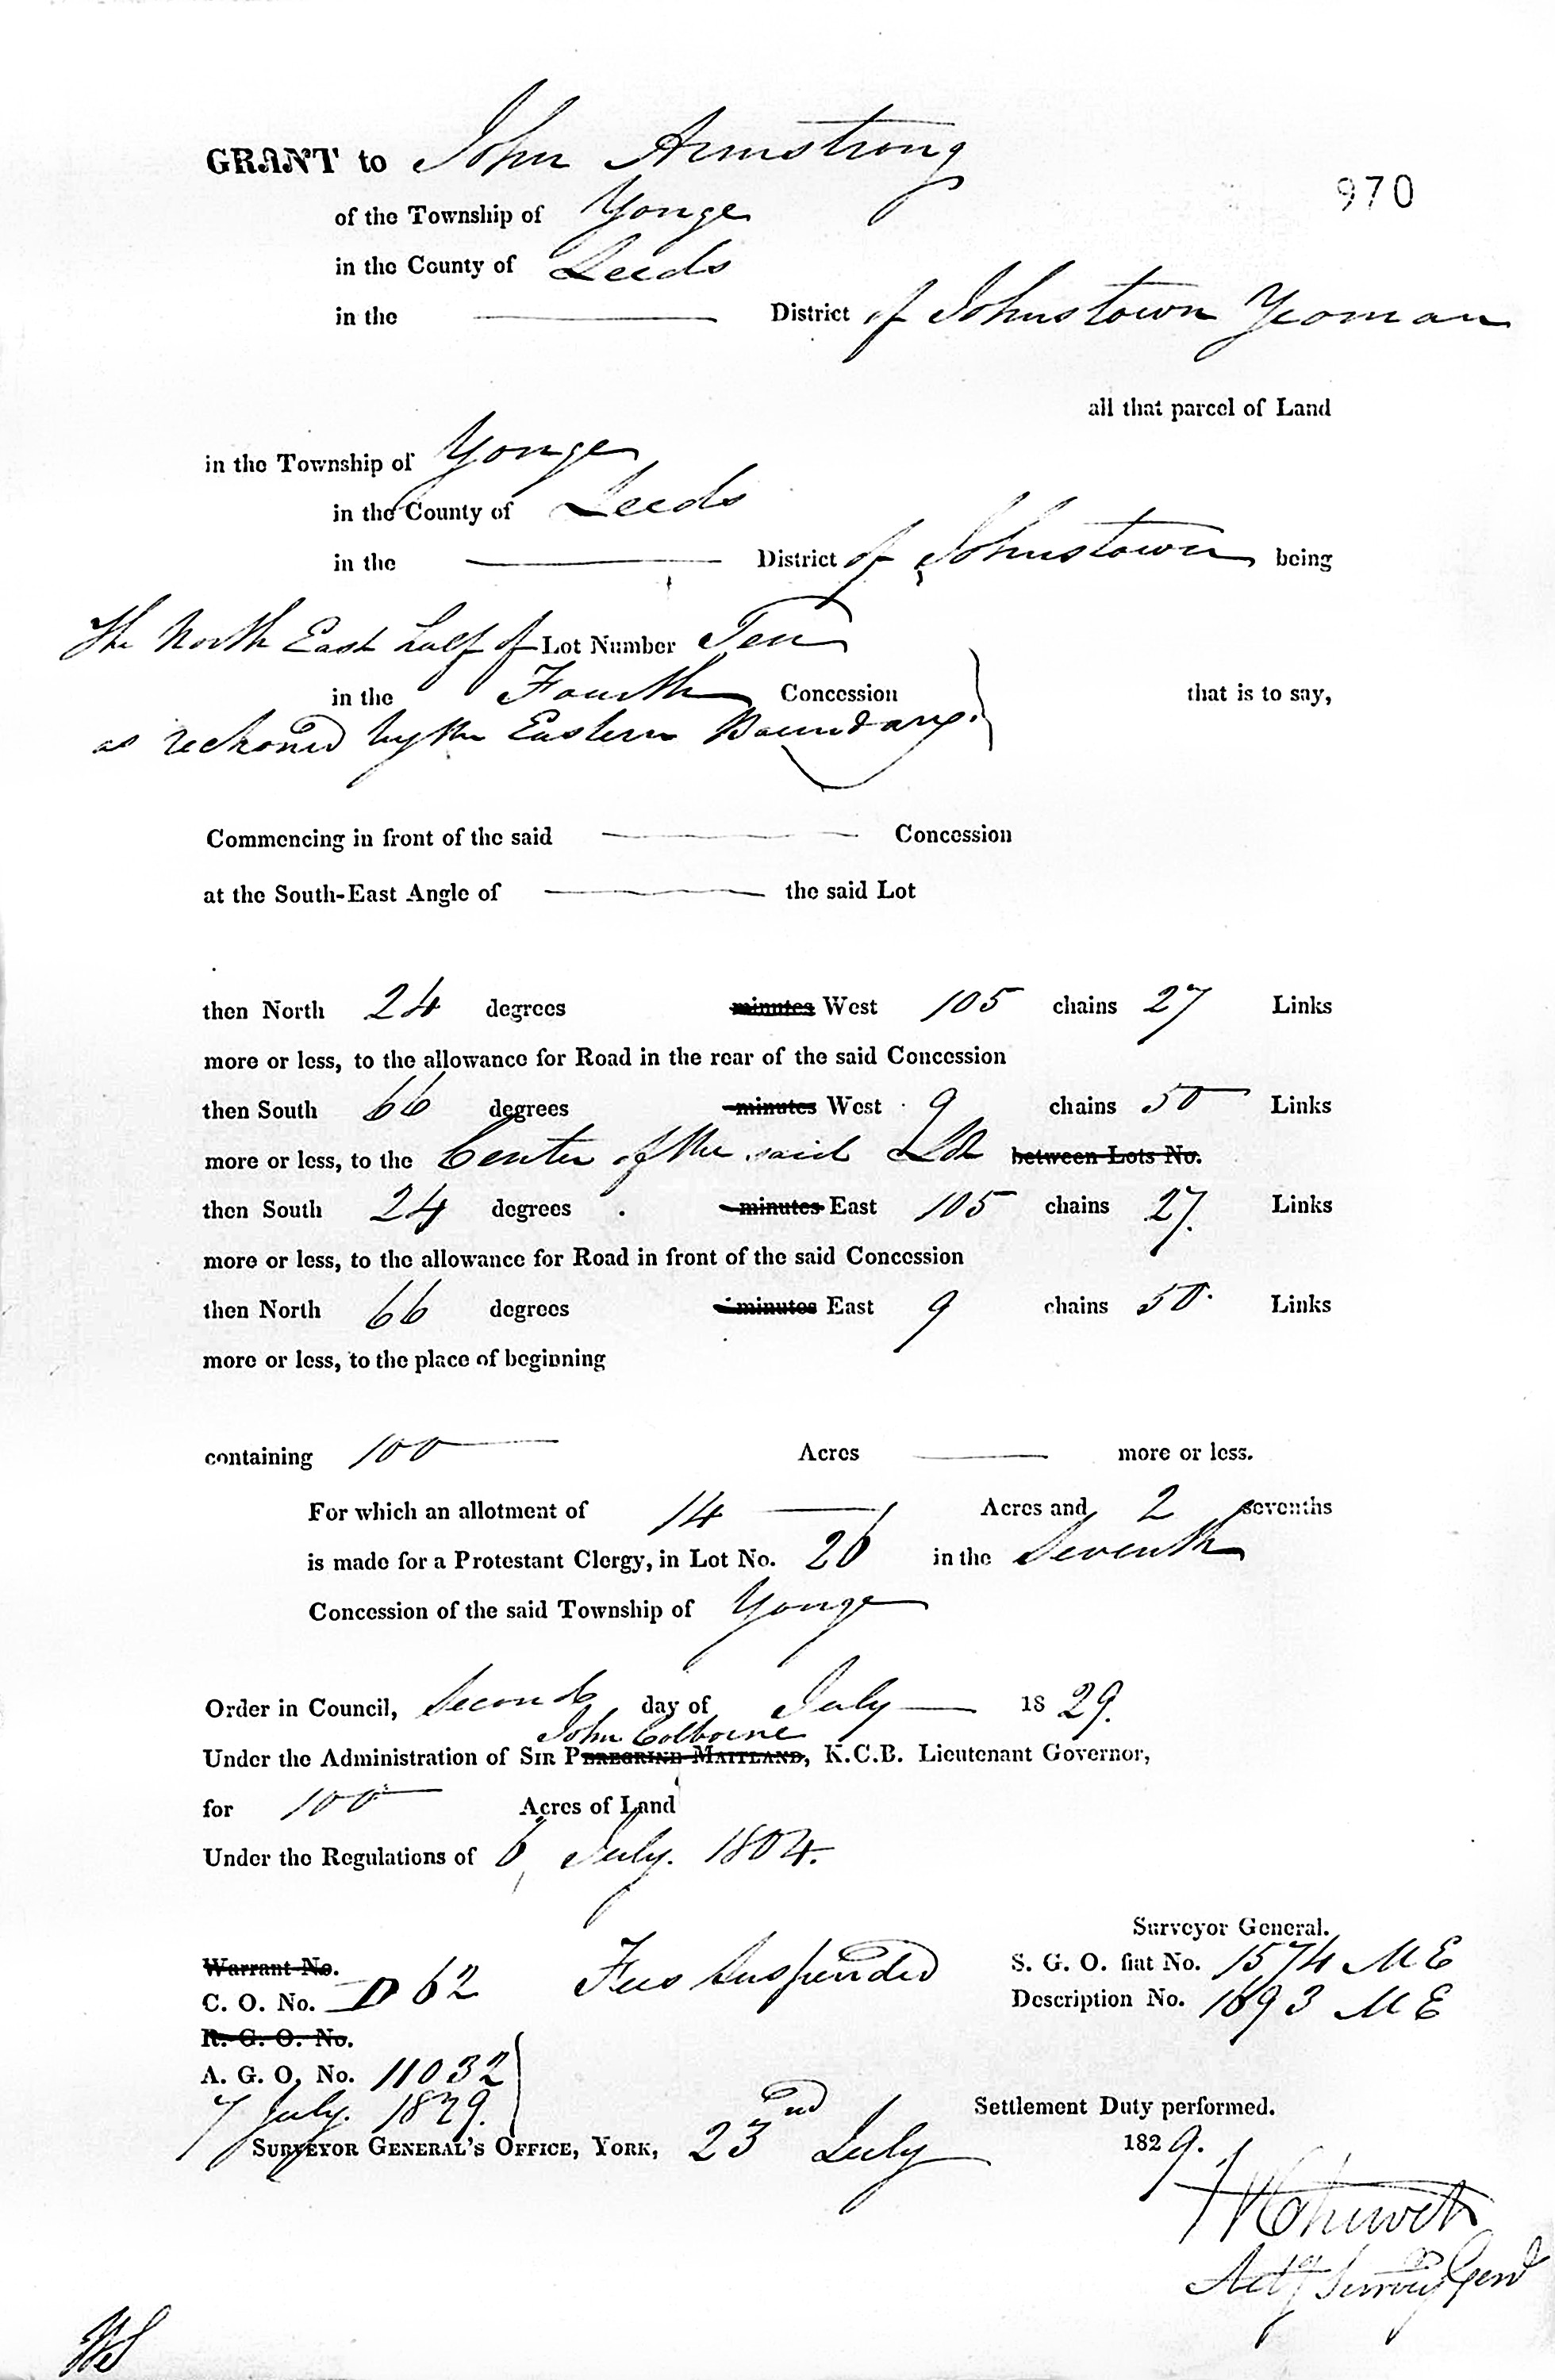 GRANT to John Armstrong
970
of the Township of Yonge
in the County of Leeds
in the District of Johnstown Yeoman
all that parcel of Land
in the Township of Yonge
in the County of Leeds
in the District of Johnstown being
The North East half of Lot Number Ten
in the Fourth Concession that is to say,
as reckoned by the Eastern Boundary.
Commencing in front of the said Concession
at the South-East Angle of the said Lot
then North 24 degrees minutes West 105 chains 27 Links
more or less, to the allowance for Road in the rear of the said Concession
then South 66 degrees minutes West 9 chains 50 Links
more or less, to the Center of the said Lot between Lots No.
then South 24 degrees minutes East 105 chains 27. Links
more or less, to the allowance for Road in front of the said Concession
then North 66 degrees minutes East 9 chains 50. Links
more or less, to the place of beginning
containing 100 Acres more or less.
For which an allotment of 14 Acres and 2 sevenths
is made for a Protestant Clergy, in Lot No. 26 in the Seventh
Concession of the said Township of Yonge
Order in Council, Second day of July 1829.
John Colborne
Under the Administration of SIR PEREGRINE MAITLAND, K.C.B. Lieutenant Governor,
for 100 Acres of Land
Under the Regulations of 6 July. 1804.
Surveyor General.
Warrant No. Fees Suspended S. G. O. fiat No. 1574 M E
C. O. No. D 62 Description No. 1693 M E
R. G. O. No.
A. G. O. No. 11032
7 July. 1829. Settlement Duty performed.
SURVEYOR GENERAL'S OFFICE, YORK, 23nd July 1829.
Actg Survey Genl